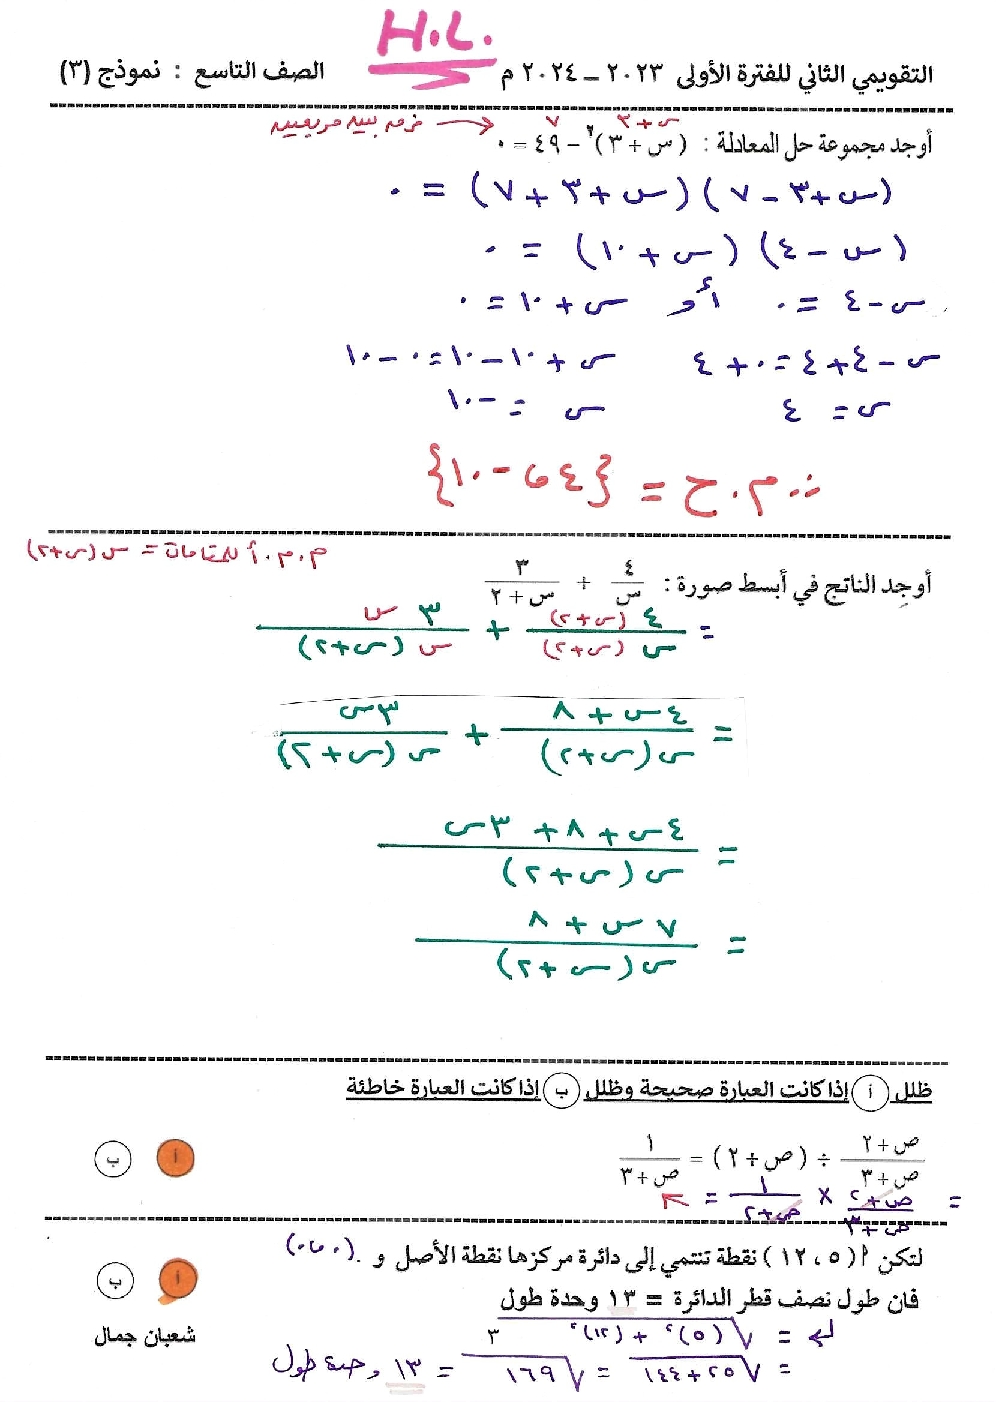 H.L.
التقويمي الثاني للفترة الأولى ٢٠٢٣ – ٢٠٢٤ م الصف التاسع : نموذج (٣)
س+٣ ٧ ← فرق بين مربعين
أوجد مجموعة حل المعادلة : (س + ٣)٢ – ٤٩ = ٠
(س+٣–٧) (س+٣+٧) = ٠
(س – ٤) (س + ١٠) = ٠
س – ٤ = ٠ أو س + ١٠ = ٠
س – ٤ + ٤ = ٠ + ٤ س + ١٠ – ١٠ = ٠ – ١٠
س = ٤ س = –١٠
∴ م.ح = {٤ ، –١٠}
م.م.أ للمقامات = س (س+٢)
أوجد الناتج في أبسط صورة : ٤/س + ٣/(س + ٢)
= ٤ (س+٢) / س (س+٢) + ٣ س / س (س+٢)
= ٤س + ٨ / س (س+٢) + ٣س / س (س+٢)
= ٤س + ٨ + ٣س / س (س+٢)
= ٧س + ٨ / س (س+٢)
ظلل أ إذا كانت العبارة صحيحة وظلل ب إذا كانت العبارة خاطئة
(ص+٢)/(ص+٣) ÷ (ص+٢) = ١/(ص+٣) أ ب
= (ص+٢)/(ص+٣) × ١/(ص+٢) =
لتكن أ (٥ ، ١٢) نقطة تنتمي إلى دائرة مركزها نقطة الأصل و . (٠،٠) أ ب
فان طول نصف قطر الدائرة = ١٣ وحدة طول
= √(٥)٢ + (١٢)٢ شعبان جمال
= √٢٥+١٤٤ = √١٦٩ = ١٣ وحدة طول